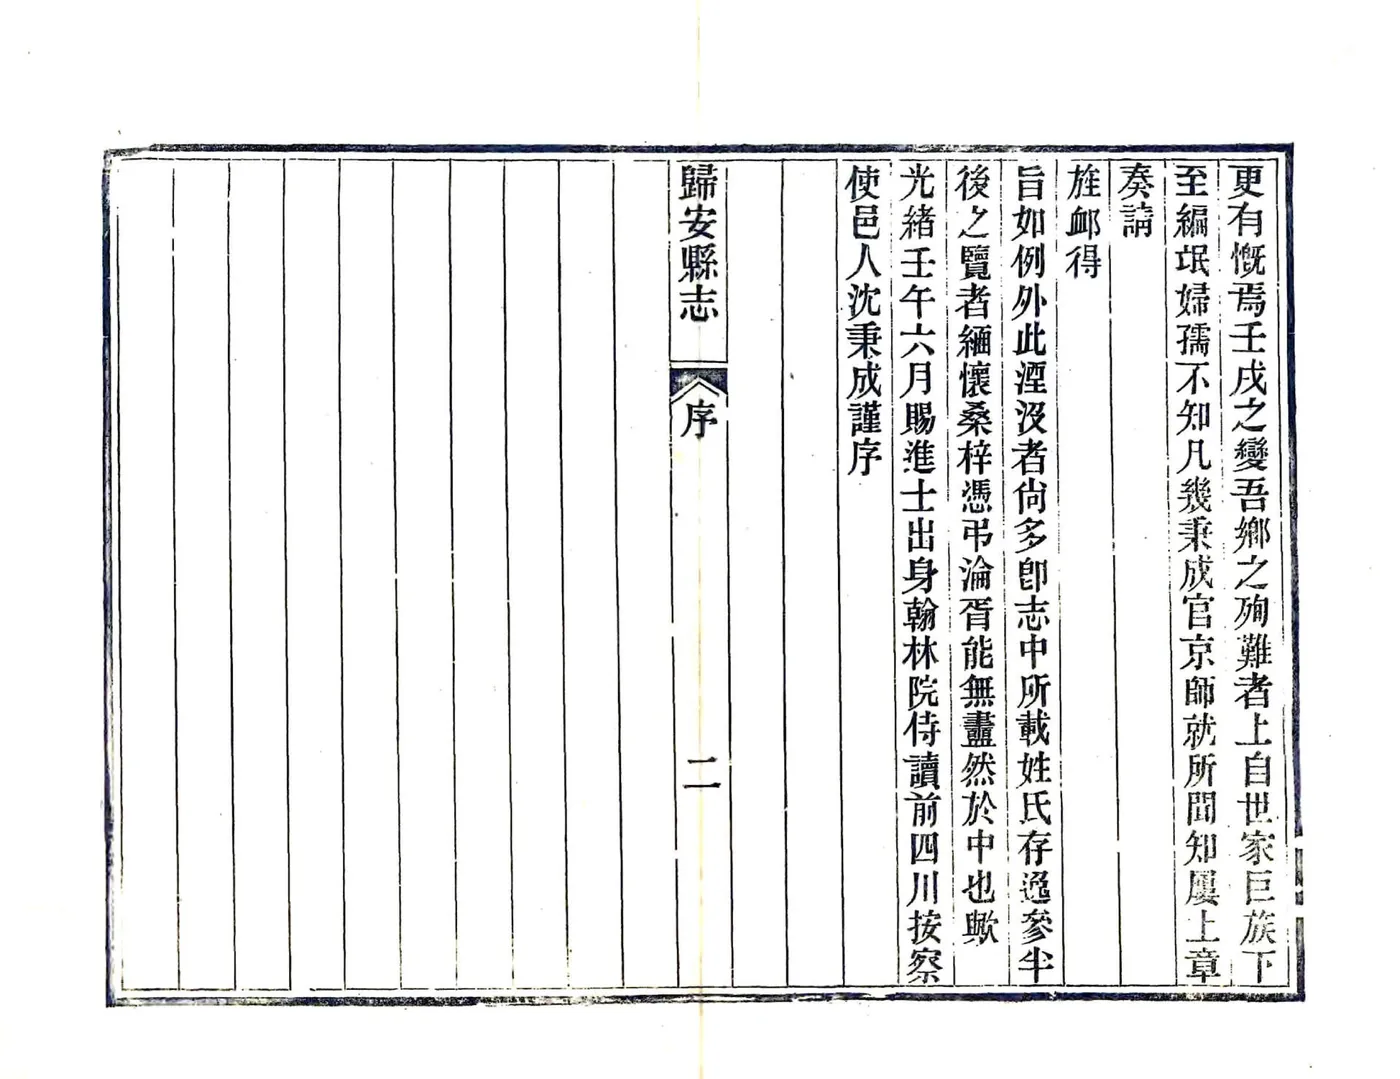 更有慨焉壬戌之變吾鄉之殉難者上自世家巨族下
至編氓婦孺不知凡幾秉成官京師就所聞知屢上章
奏請
旌卹得
旨如例外此湮沒者尙多卽志中所載姓氏存逸參半
後之覽者緬懷桑梓憑弔淪胥能無衋然於中也歟
光緒壬午六月賜進士出身翰林院侍讀前四川按察
使邑人沈秉成謹序
歸安縣志
序
二